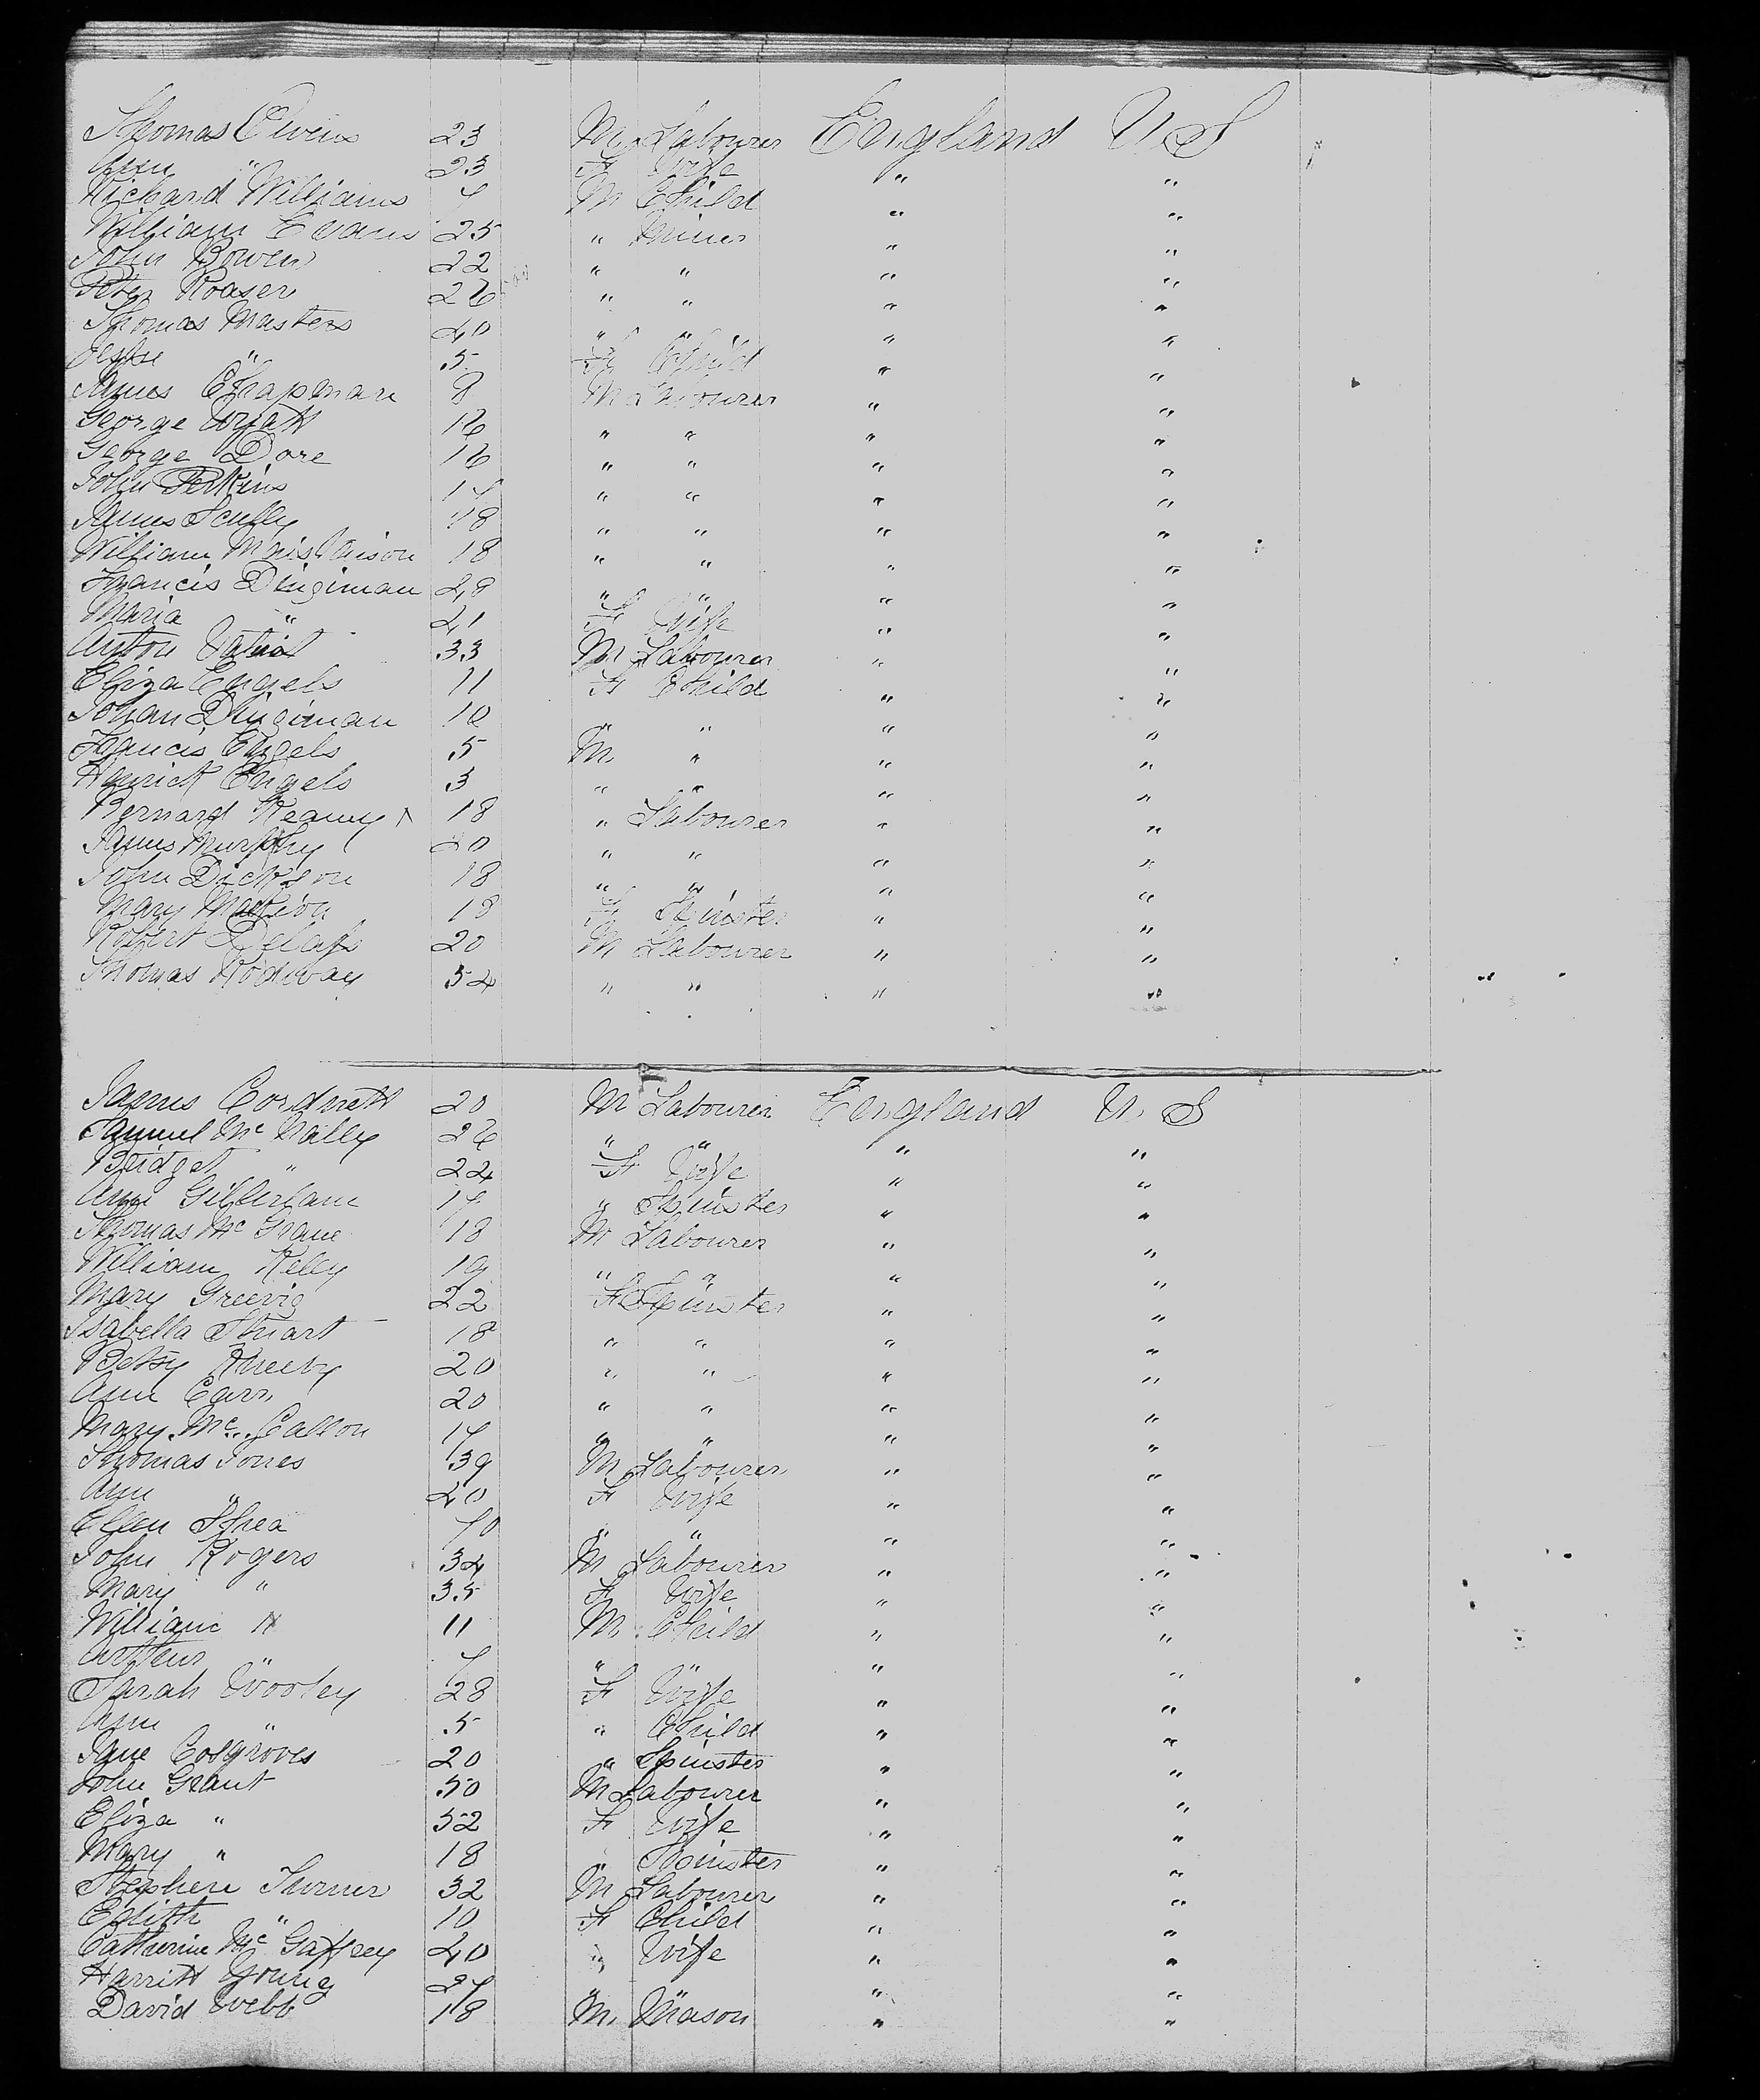 Thomas Owens 23 M Labourer England U.S
Ann " 23 F Wife " "
Richard Williams 7 M Child " "
William Evans 25 " Miner " "
John Bowen 22 " " " "
Peter Roaser 26 " " " "
Thomas Masters 40 " " " "
" 5 F Child " "
James Chapman 8 M Labourer " "
George Wyatt 16 " " " "
George Dore 16 " " " "
John Perkins 17 " " " "
James Scully 48 " " " "
William 18 " " " "
Francis Dingiman 48 " " " "
Maria " 41 F Wife " "
Anton 33 M Labourer " "
Eliza Engels 11 F Child " "
Johan Dingiman 10 " " " "
Francis Engels 5 M " " "
Henrick Engels 3 " " " "
Bernard Keamy 18 " Labourer " "
James Murphy 20 " " " "
John Dickson 18 " " " "
Mary 18 F Spinster " "
Robert 20 M Labourer " "
Thomas Rodway 54 " " " "
James Cordnett 20 M Labourer England U. S
Samuel Mc Nally 26 " " " "
Bridget " 24 F Wife " "
Ann 17 " Spinster " "
Thomas Mc Grane 18 M Labourer " "
William Kelly 19 " " " "
Mary Greevig 22 F Spinster " "
Isabella Stuart 18 " " " "
Betsy 20 " " " "
Ann Carr 20 " " " "
Mary Mc Callon 17 " " " "
Thomas Jones 39 M Labourer " "
Ann " 40 F Wife " "
Ellen Shea 70 " " " "
John Rogers 34 M Labourer " "
Mary " 35 F Wife " "
William " 11 M Child " "
Arthur " 7 " " " "
Sarah Worley 28 F Wife " "
Ann " 5 " Child " "
Jane Cosgroves 20 " Spinster " "
John Grant 50 M Labourer " "
Eliza " 52 F Wife " "
Mary " 18 " Spinster " "
Stephen Turner 32 M Labourer " "
Edith " 10 F Child " "
Catherine Mc Gaffrey 40 " Wife " "
Harriett Young 27 " " " "
David Webb 18 M. Mason " "